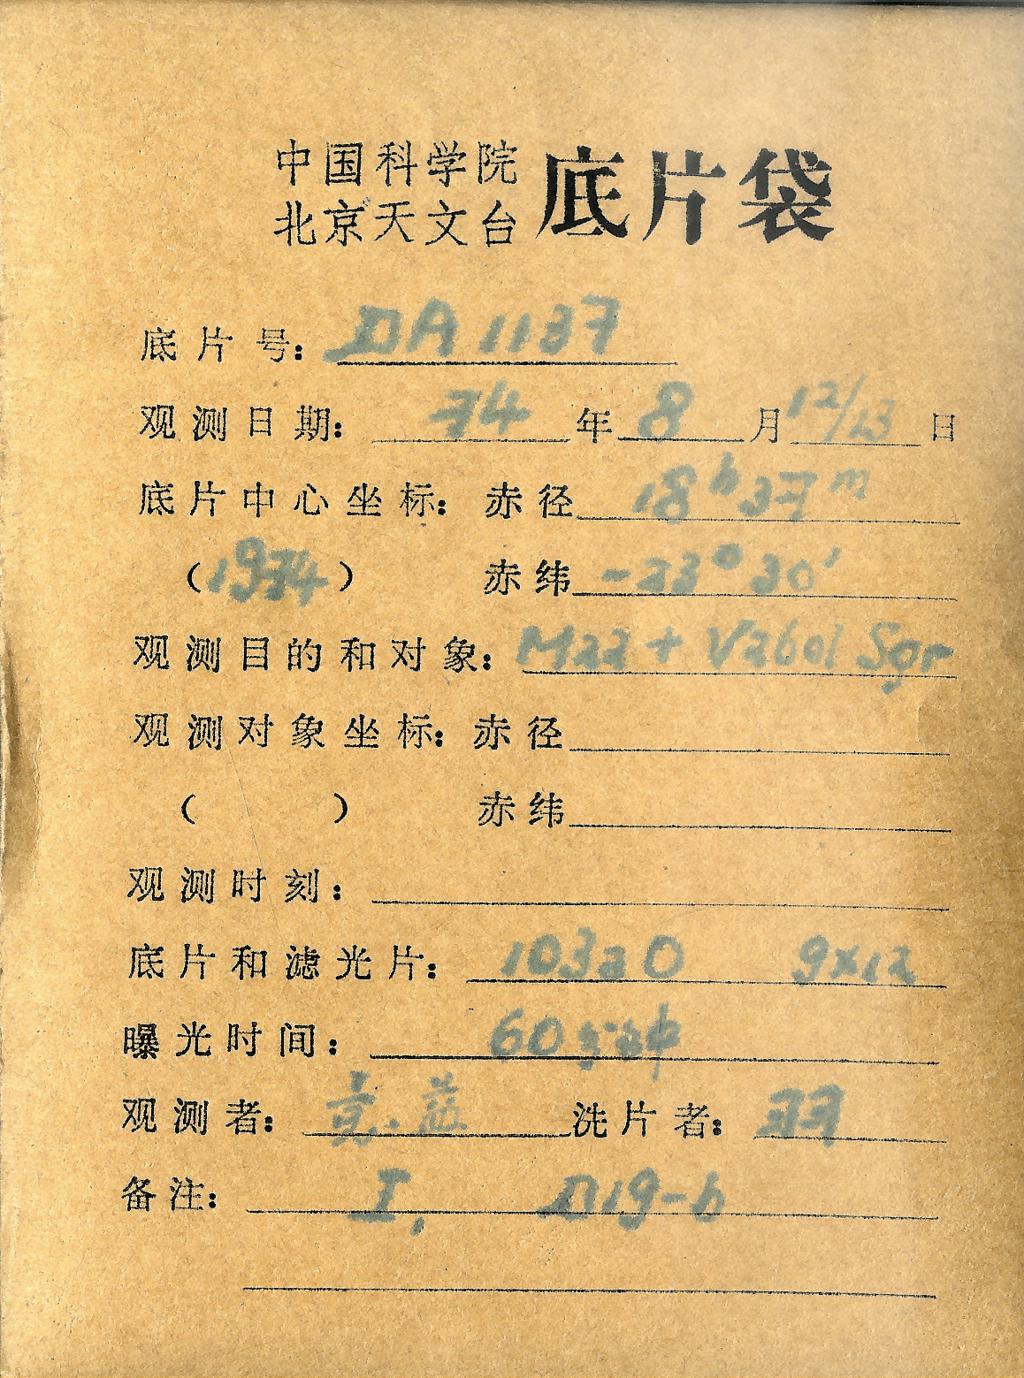 中国科学院
北京天文台 底片袋
底片号: DA1137
观测日期: 74年8月12/13日
底片中心坐标: 赤径 18h37m
(1974) 赤纬 -23°30'
观测目的和对象: M22 + V2601 Sgr
观测对象坐标: 赤径
( ) 赤纬
观测时刻:
底片和滤光片: 10320 9×12
曝光时间: 60分钟
观测者: 洗片者: 羽
备注: I, D19-b